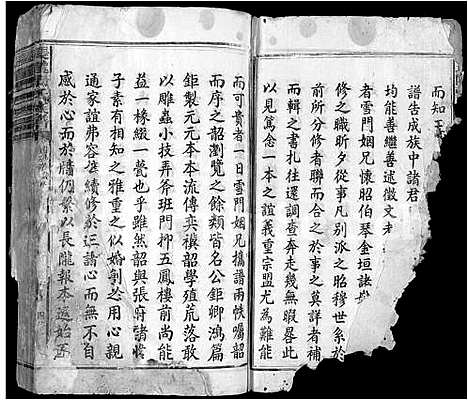 而知
譜告成族中諸君
均能善繼善述徵文考
者雲門姻兄懷昭伯琴金垣諸
修之職昕夕從事凡別派之昭穆世系於
前所分修者聯而合之於事之莫詳者補
而輯之書札往還調查奔走幾無暇晷此
以見篤念一本之誼義重宗盟尤為難能
而可貴者一日雲門姻兄攜譜兩帙囑韶
而序之韶瀏覽之餘類皆名公鉅卿鴻篇
鉅製元元本本流傳奕禩韶學殖荒落敢
以雕蟲小技弄斧班門抑五鳳樓前尚能
益一椽綴一甍也乎雖然韶與張府諸
子素有相知之雅重之以婚媾忝用心親
通家誼弗容
感於心而於